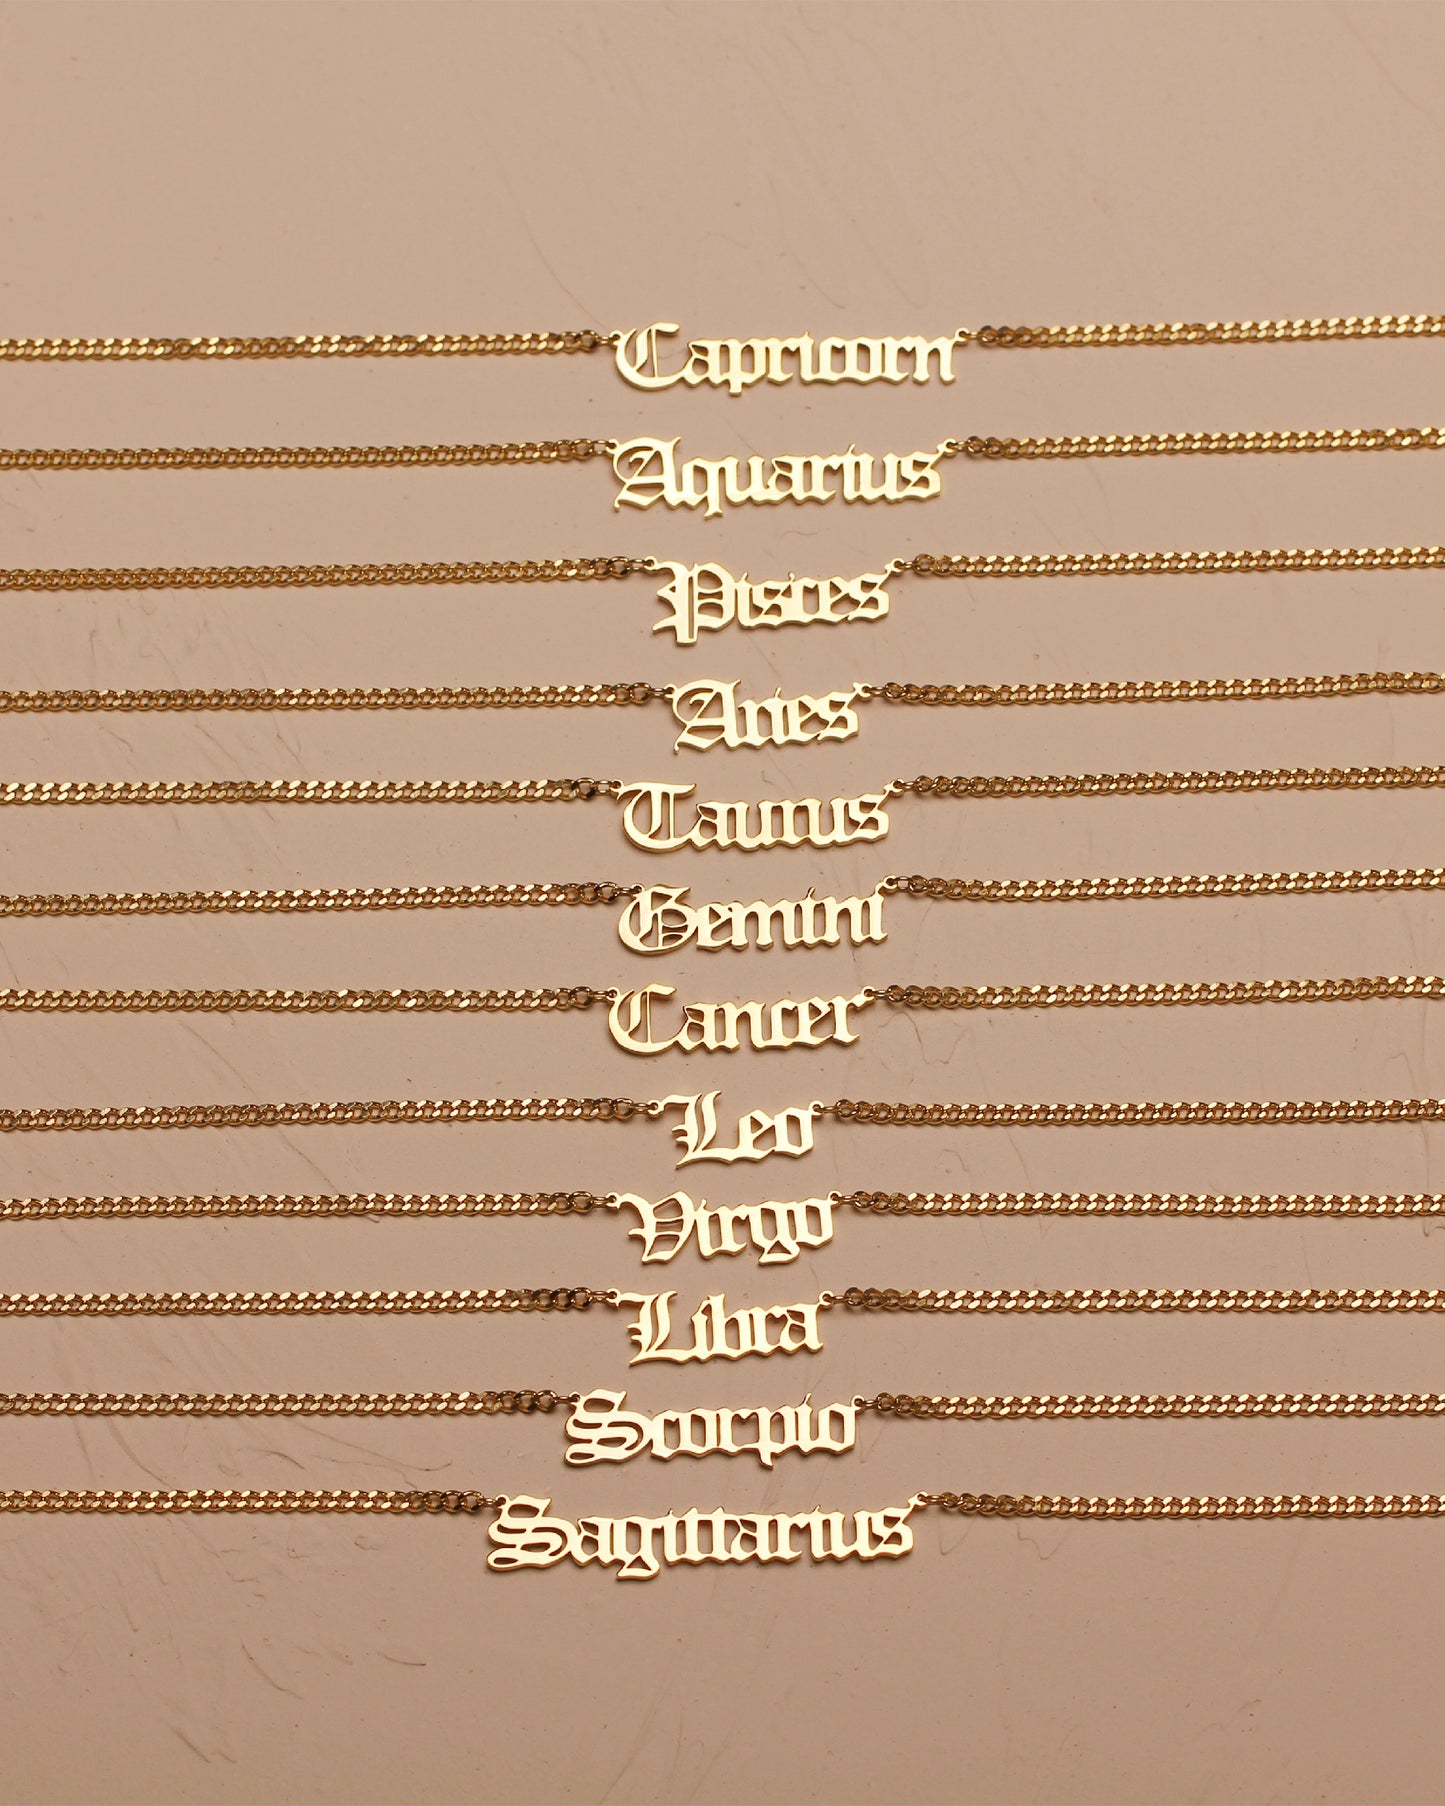 Capricorn
Aquarius
Pisces
Aries
Taurus
Gemini
Cancer
Leo
Virgo
Libra
Scorpio
Sagittarius